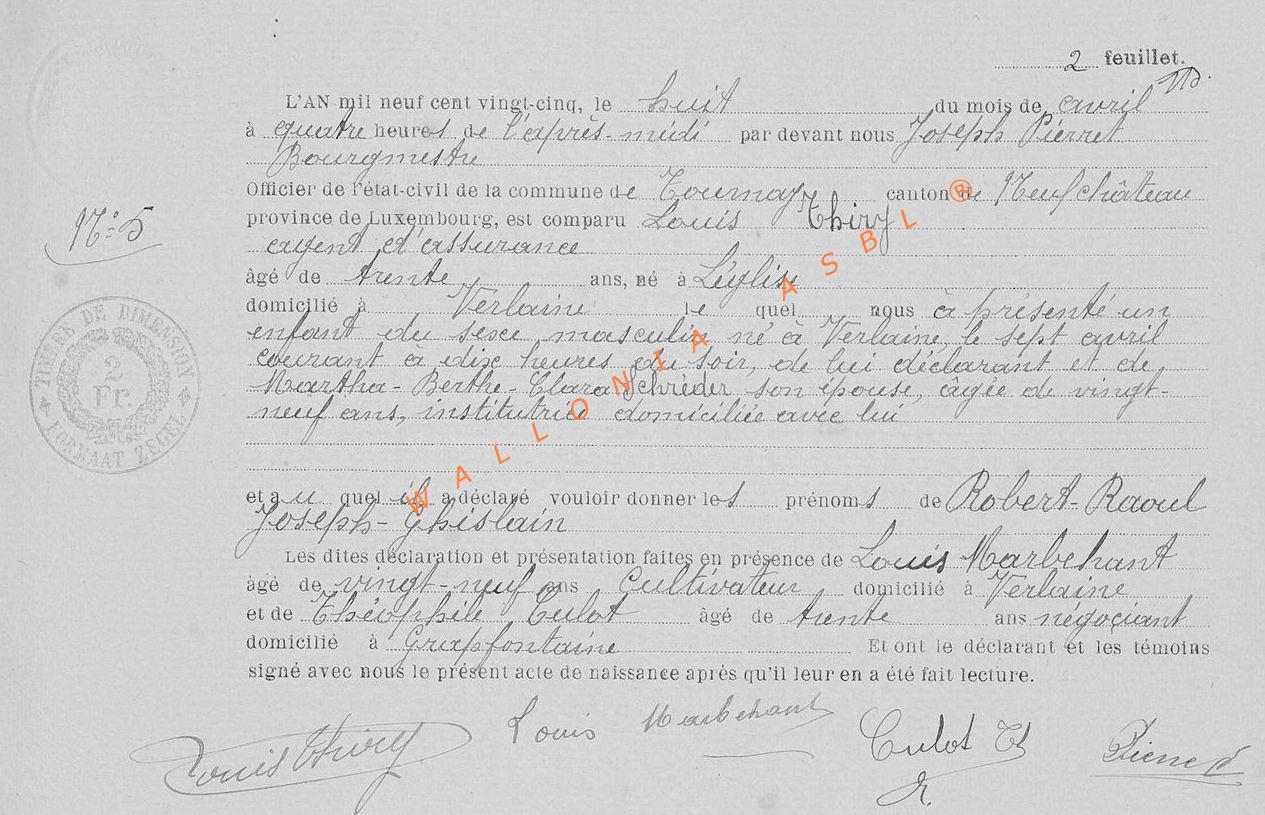 2 feuillet.
L'AN mil neuf cent vingt-cinq, le huit du mois de avril
à quatre heures de l'après-midi par devant nous Joseph Pierret
Bourgmestre
Officier de l'état-civil de la commune de Tournay canton de Neufchâteau
N° 5
province de Luxembourg, est comparu Louis Thiry
agent d'assurance
âgé de trente ans, né à Léglise
domicilié à Verlaine le quel nous a présenté un
enfant du sexe masculin né à Verlaine, le sept avril
courant à dix heures du soir, de lui déclarant et de
Martha-Berthe-Clara Schréder son épouse, âgée de vingt-
neuf ans, institutrice domiciliée avec lui
TIMBRE DE DIMENSION
2
Fr.
FORMAAT ZEGEL
et au quel il a déclaré vouloir donner les prénoms de Robert-Raoul
Joseph-Ghislain
Les dites déclaration et présentation faites en présence de Louis Marbehant
âgé de vingt-neuf ans Cultivateur domicilié à Verlaine
et de Théophile Culot âgé de trente ans négociant
domicilié à Grapfontaine Et ont le déclarant et les témoins
signé avec nous le présent acte de naissance après qu'il leur en a été fait lecture.
Louis Thiry Louis Marbehant Culot Th
WALLONIA ASBL ®